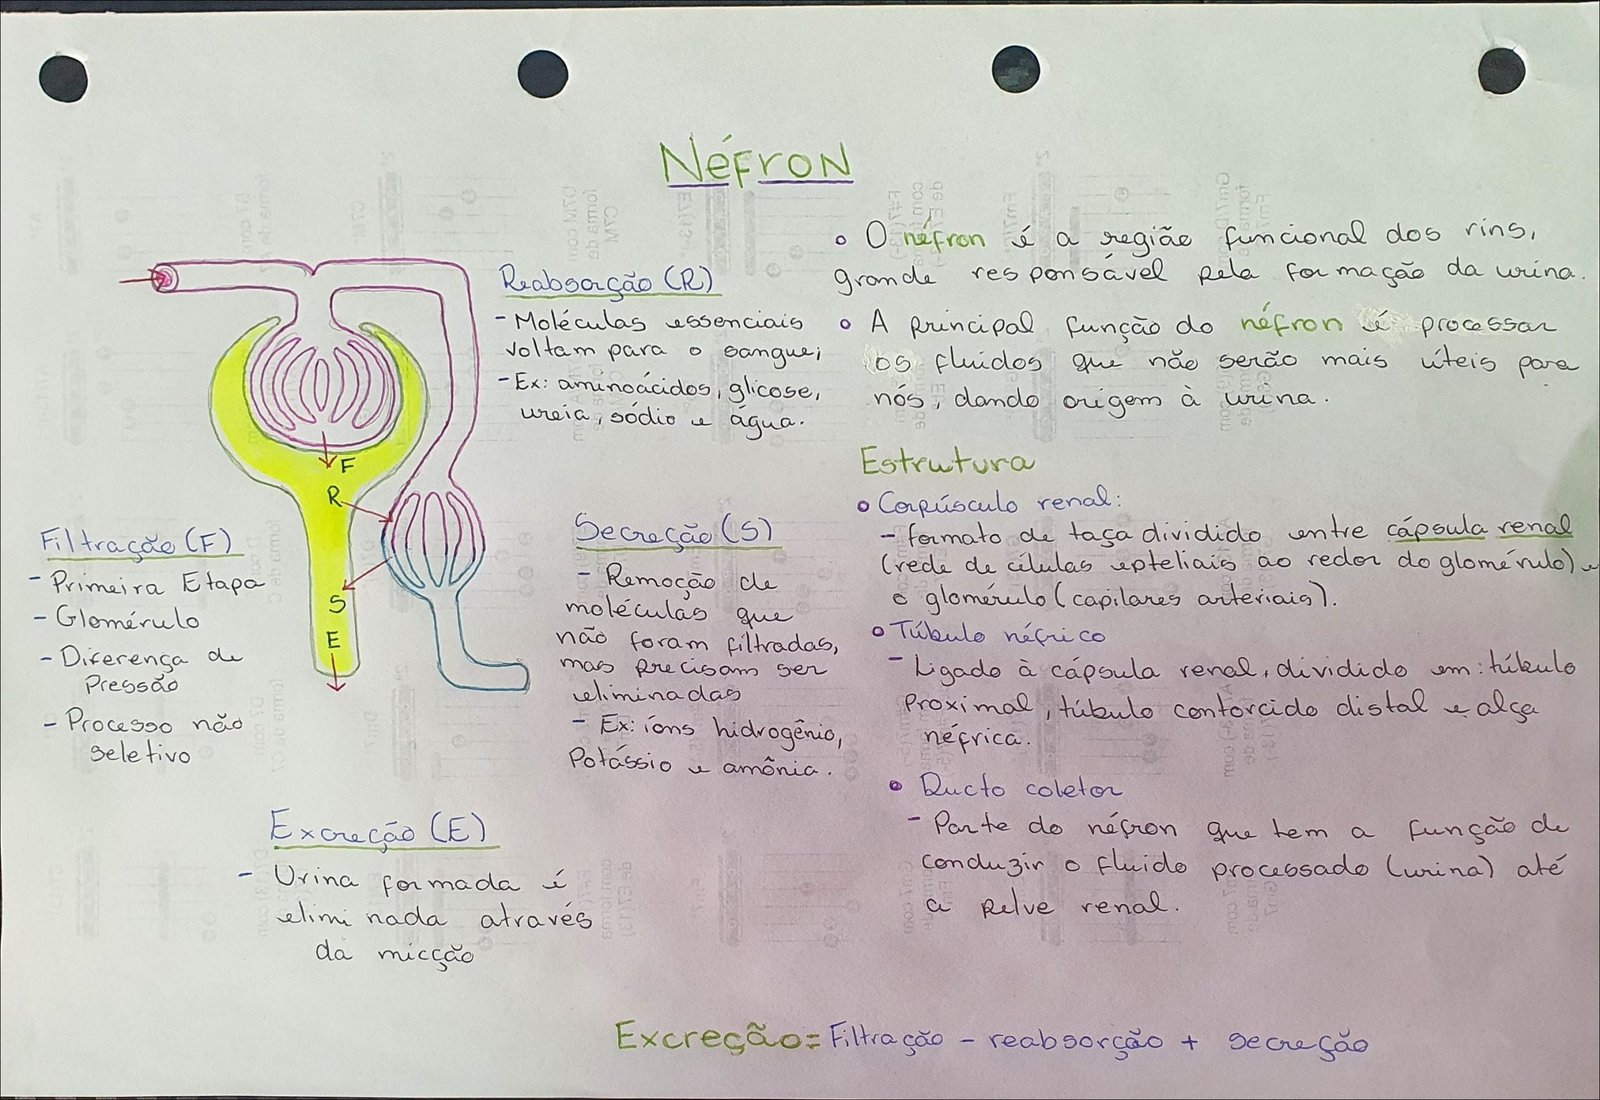 Néfron
Reabsorção (R)
- Moléculas essenciais
voltam para o sangue;
- Ex: aminoácidos, glicose,
ureia, sódio e água.
F
R
S
E
Filtração (F)
- Primeira Etapa
- Glomérulo
- Diferença de
Pressão
- Processo não
seletivo
Secreção (S)
- Remoção de
moléculas que
não foram filtradas,
mas precisam ser
eliminadas
- Ex: íons hidrogênio,
Potássio e amônia.
Excreção (E)
- Urina formada é
eliminada através
da micção
O néfron é a região funcional dos rins,
grande responsável pela formação da urina.
A principal função do néfron é processar
os fluidos que não serão mais úteis para
nós, dando origem à urina.
Estrutura
Corpúsculo renal:
- formato de taça dividido entre cápsula renal
(rede de células epteliais ao redor do glomérulo) e
o glomérulo (capilares arteriais).
Túbulo néfrico
- Ligado à cápsula renal, dividido em: túbulo
Proximal, túbulo contorcido distal e alça
néfrica.
Ducto coletor
- Parte do néfron que tem a função de
conduzir o fluido processado (urina) até
a pelve renal.
Excreção = Filtração - reabsorção + secreção